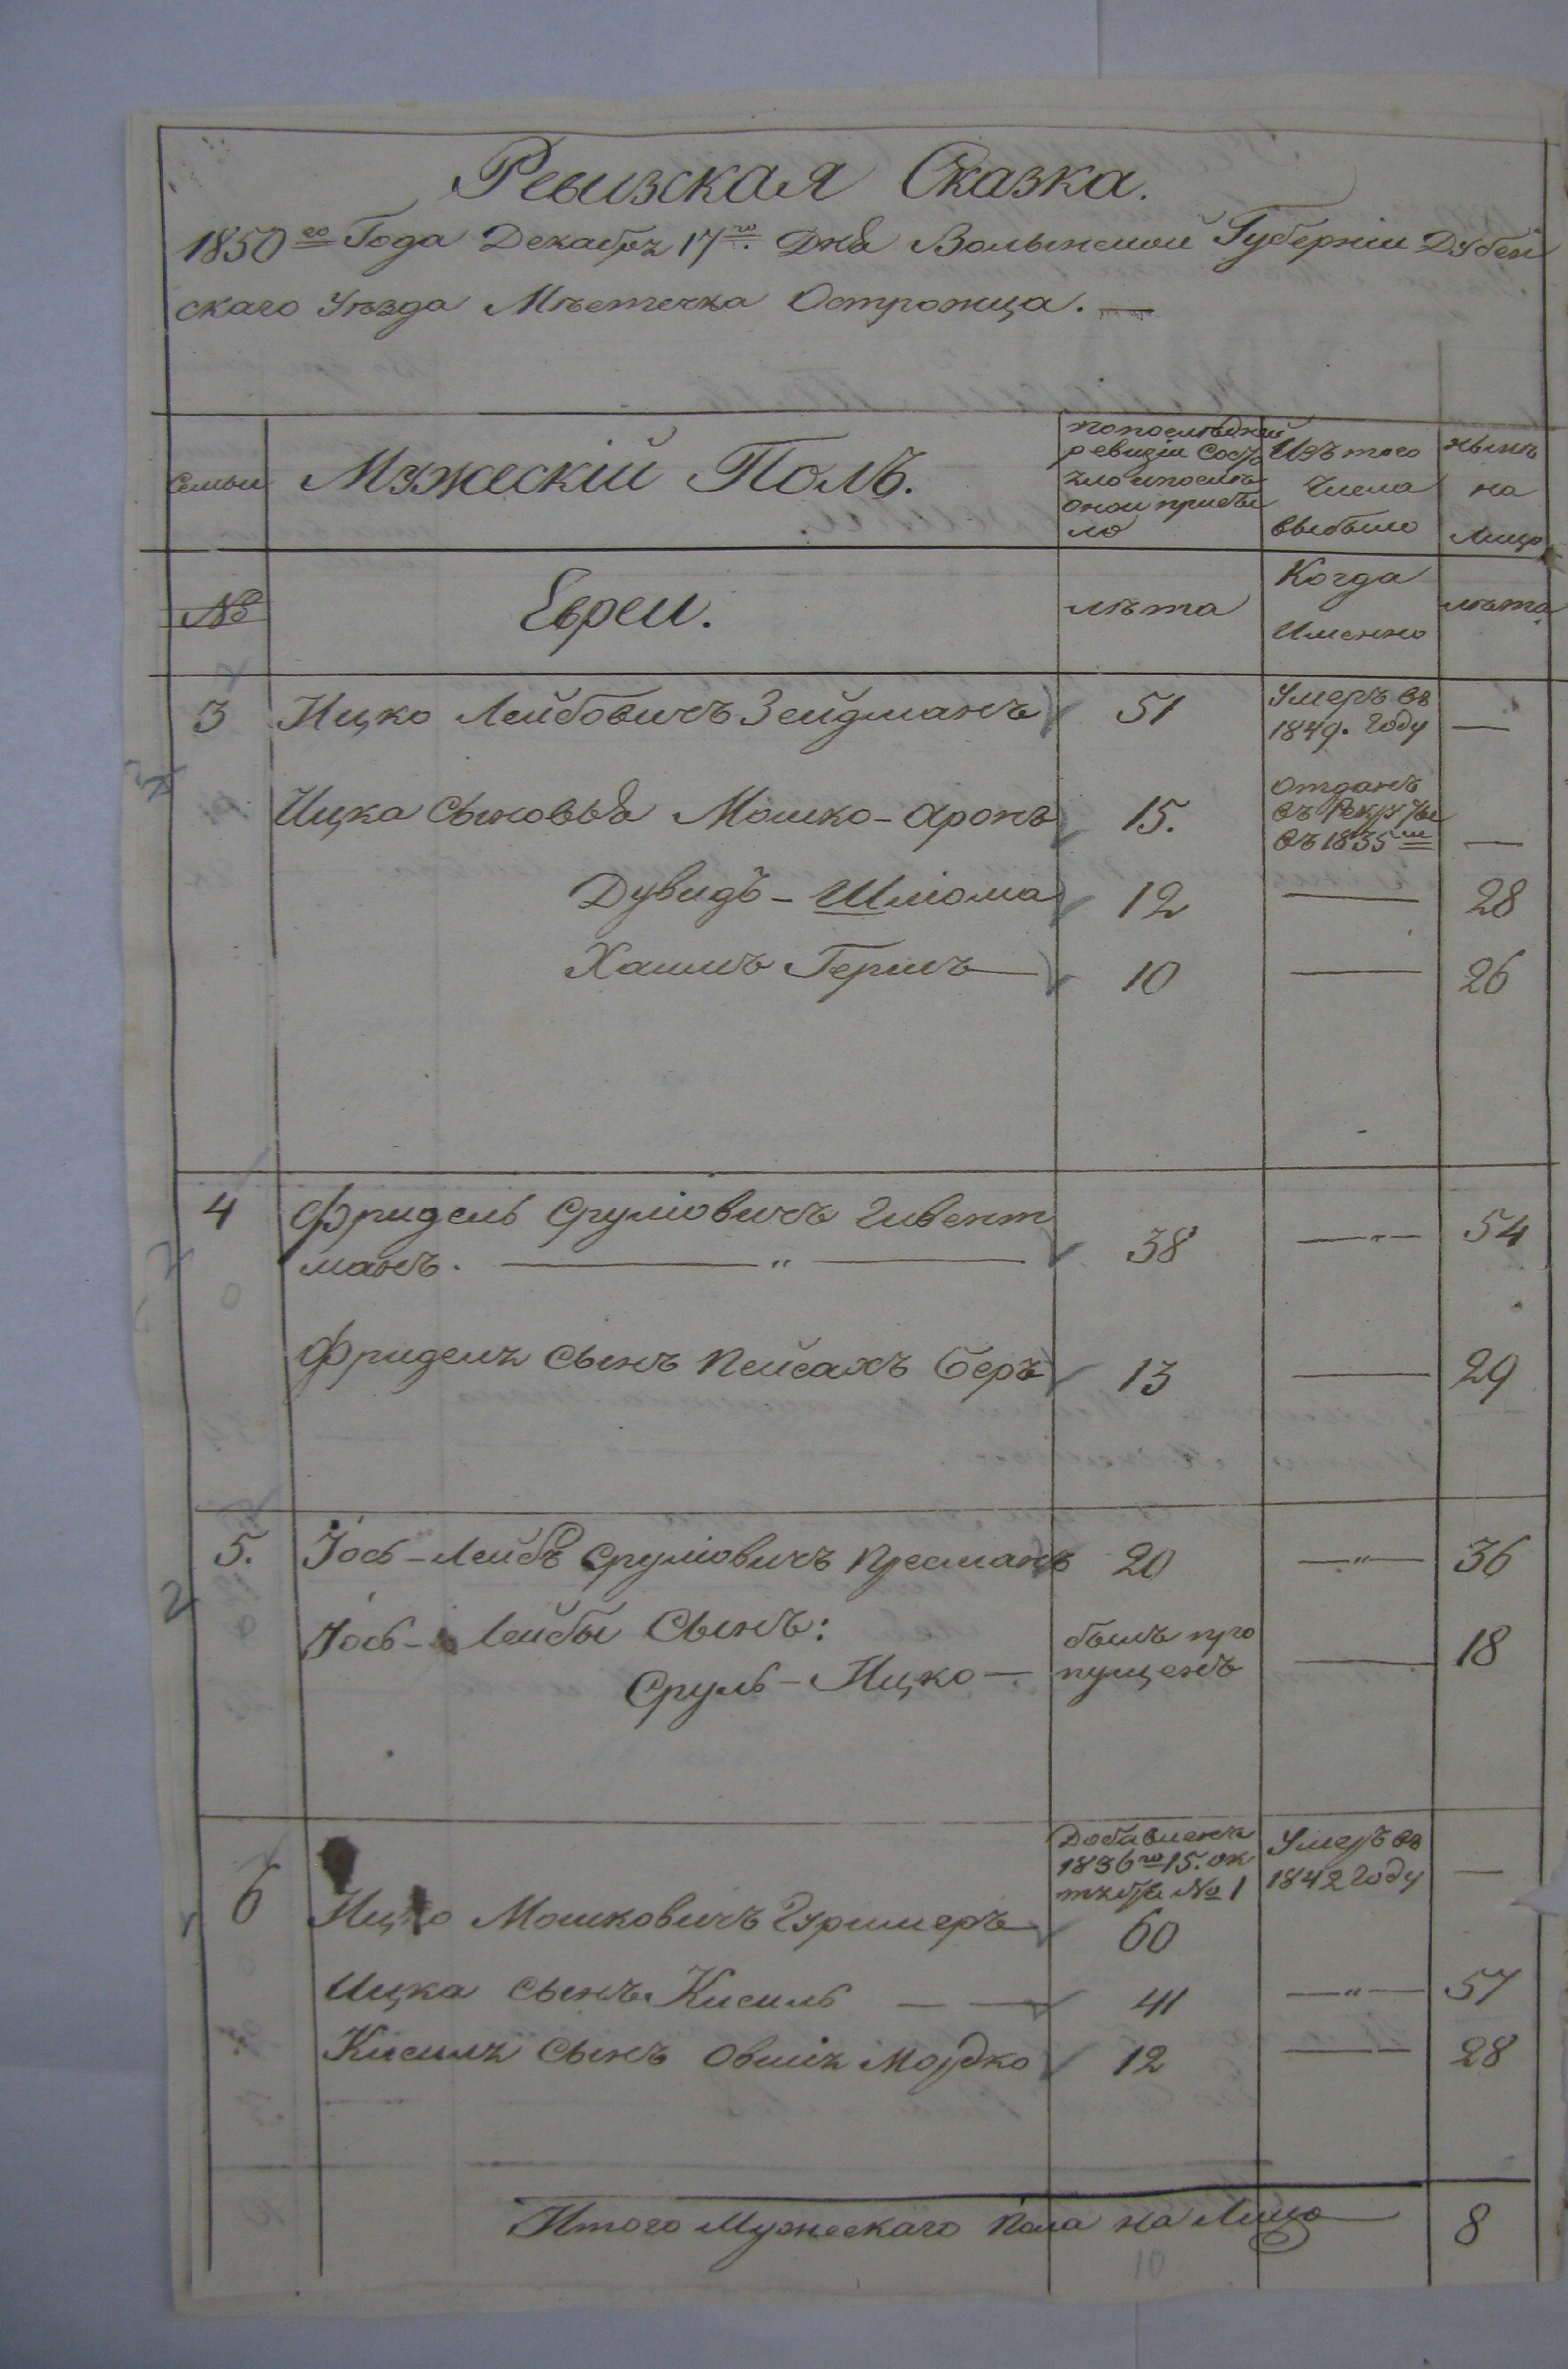 Ревизская Сказка.
1850го Года Декабря 17го Дня Волынской Губерніи Дубен
скаго Уѣзда Мѣстечка Острожца. —
Семьи
Мужескій Полъ.
по последней
ревизіи состо
яло и после
оной прибы
ло
Изъ того
числа
выбыло
нынѣ
на
Лицо
№
Евреи.
лѣта
Когда
Именно
лѣта
3 Ицко Лейбовичъ Зейдманъ 51 Умеръ въ
1849. Году —
Ицка сыновья Мошко-Аронъ 15. Отданъ
въ Рекруты
въ 1835мъ —
Дувидъ-Шліома 12 — 28
Хаимъ Гершъ — 10 — 26
4 Фридель Сруліовичъ Гивент
манъ. — " — 38 — " — 54
Фриделя сынъ Пейсахъ Беръ 13 — 29
5. Іось-Лейбъ Сруліовичъ Пресманъ 20 — " — 36
Іось-Лейбы Сынъ:
Сруль-Ицко — былъ про
пущенъ — 18
Добавленъ
1836го 15. ок
тября № 1
Умеръ въ
1842 Году —
6 Ицко Мошковичъ Гуршмеръ 60
Ицка сынъ Кисиль — — 41 — " — 57
Кисиля сынъ Овшія Мордко 12 — 28
Итого Мужескаго Пола на Лицо 8
10